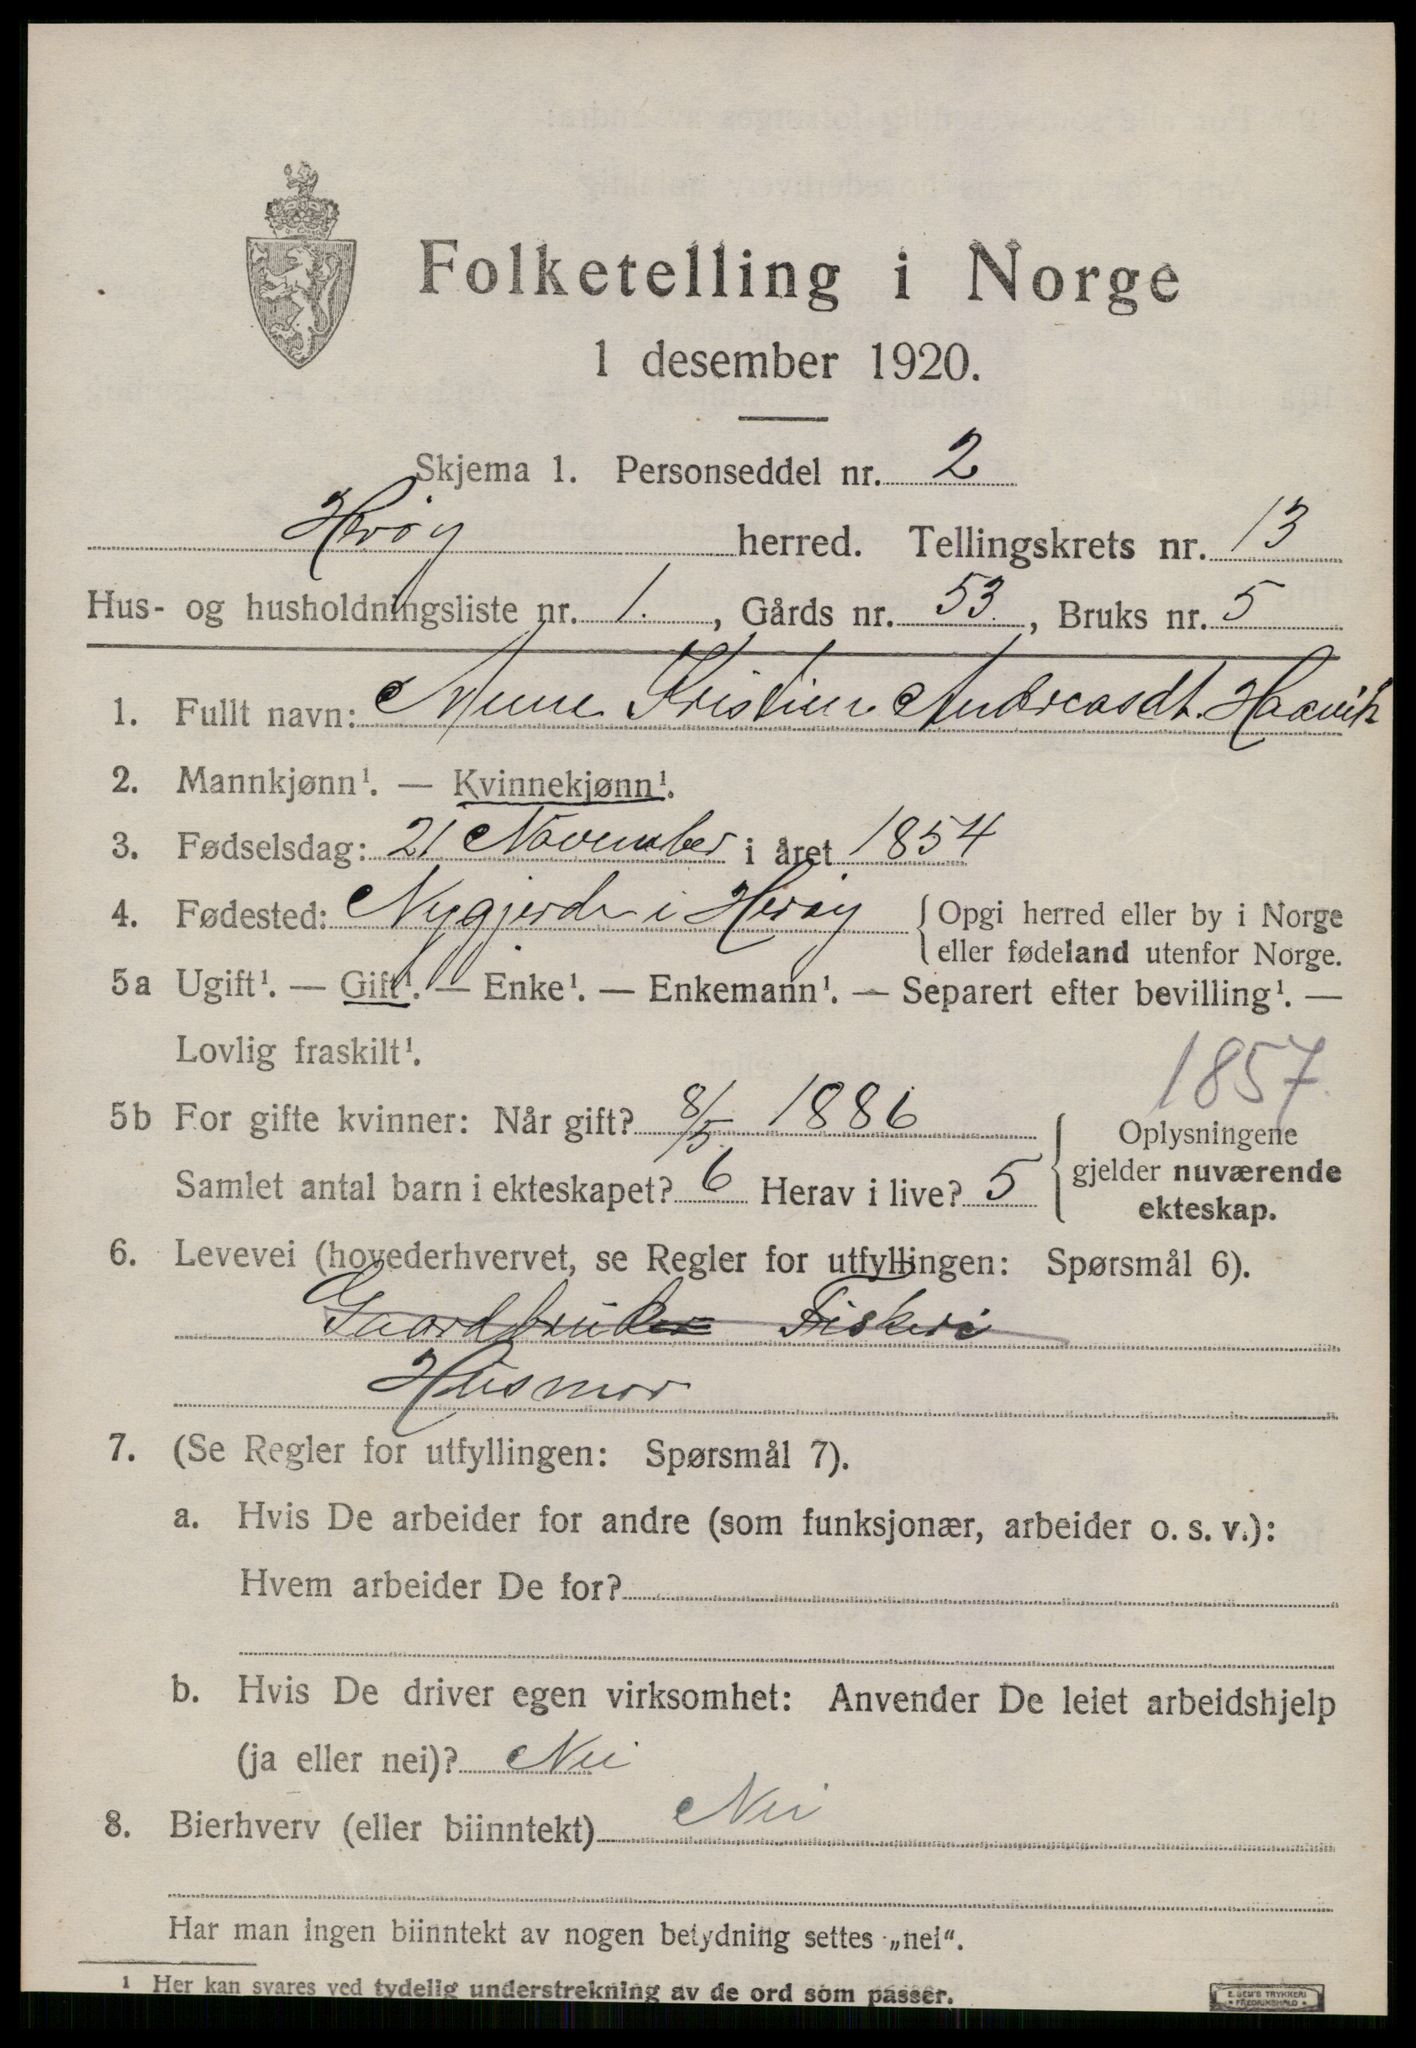 Folketelling i Norge
1 desember 1920.
Skjema 1. Personseddel nr. 2
Herøy herred. Tellingskrets nr. 13
Hus- og husholdningsliste nr. 1. , Gårds nr. 53. , Bruks nr. 5
1. Fullt navn: Anne Kristine Andreasdt. Haavik
2. Mannkjønn¹. — Kvinnekjønn¹.
3. Fødselsdag: 21 November i året 1854
4. Fødested: Nygjerde i Herøy { Opgi herred eller by i Norge
eller fødeland utenfor Norge.
5a Ugift¹. — Gift¹. — Enke¹. — Enkemann¹. — Separert efter bevilling¹. —
Lovlig fraskilt¹.
1857.
5b For gifte kvinner: Når gift? 8/5. 1886 { Oplysningene
gjelder nuværende
ekteskap.
Samlet antal barn i ekteskapet? 6 Herav i live? 5
6. Levevei (hovederhvervet, se Regler for utfyllingen: Spørsmål 6).
Gaardbruker Fiskeri
Husmor
7. (Se Regler for utfyllingen: Spørsmål 7).
a. Hvis De arbeider for andre (som funksjonær, arbeider o. s. v.):
Hvem arbeider De for?
b. Hvis De driver egen virksomhet: Anvender De leiet arbeidshjelp
(ja eller nei)? Nei
8. Bierhverv (eller biinntekt) Nei
Har man ingen biinntekt av nogen betydning settes „nei“.
¹ Her kan svares ved tydelig understrekning av de ord som passer.
E. SEM'S TRYKKERI
FREDRIKSHALD